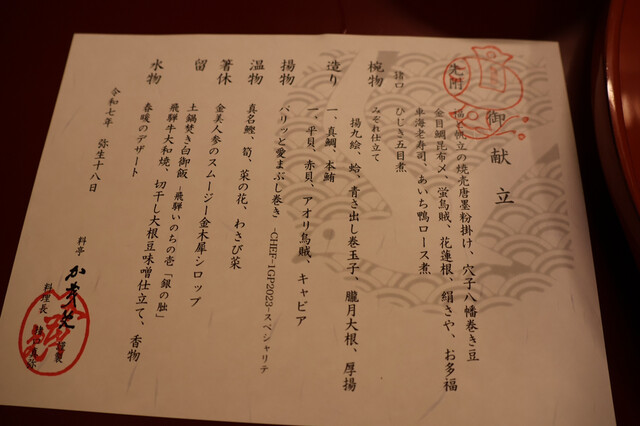 御献立
先附
帆立の焼売唐墨粉掛け、穴子八幡巻き豆
金目鯛昆布〆、蛍烏賊、花蓮根、絹さや、お多福
車海老寿司、あいち鴨ロース煮
猪口
ひじき五目煮
椀物
みぞれ仕立て
揚丸絵、蛤、青さ出し巻玉子、朧月大根、厚揚
造り
一、真鯛、本鮪
一、平貝、赤貝、アオリ烏賊、キャビア
揚物
パリッと愛まぶし巻き -CHEF-1GP2023-スペシャリテ
温物
真名鰹、筍、菜の花、わさび菜
箸休
金美人参のスムージー金木犀シロップ
留
土鍋焚き白御飯 -飛騨いのちの壱「銀の朏」
飛騨牛大和焼、切干し大根豆味噌仕立て、香物
水物
春暖のデザート
令和七年 弥生十八日
料亭
料理長
謹製